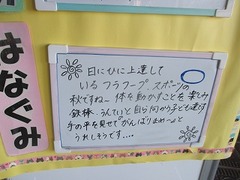 はなぐみ
日にひに上達して
いるフラフープ。スポーツの
秋ですね〜 体を動かすことを楽しみ
鉄棒、うんていと自ら向かう子ども達です
手の平を見せて"がんばりまめ〜"と
うれしそうです....